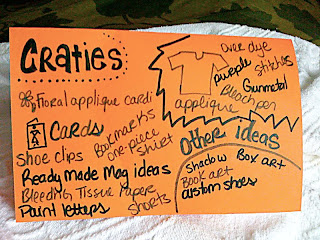 Craties
Floral applique cardi
Cards
Bookmarks
one-piece
shirt
Shoe clips
Ready made Mag ideas
Bleeding Tissue Paper
Paint letters
shorts
Over dye
purple stitches
Gunmetal
Bleach pen
applique
Other ideas
Shadow Box art
Book art
custom shoes